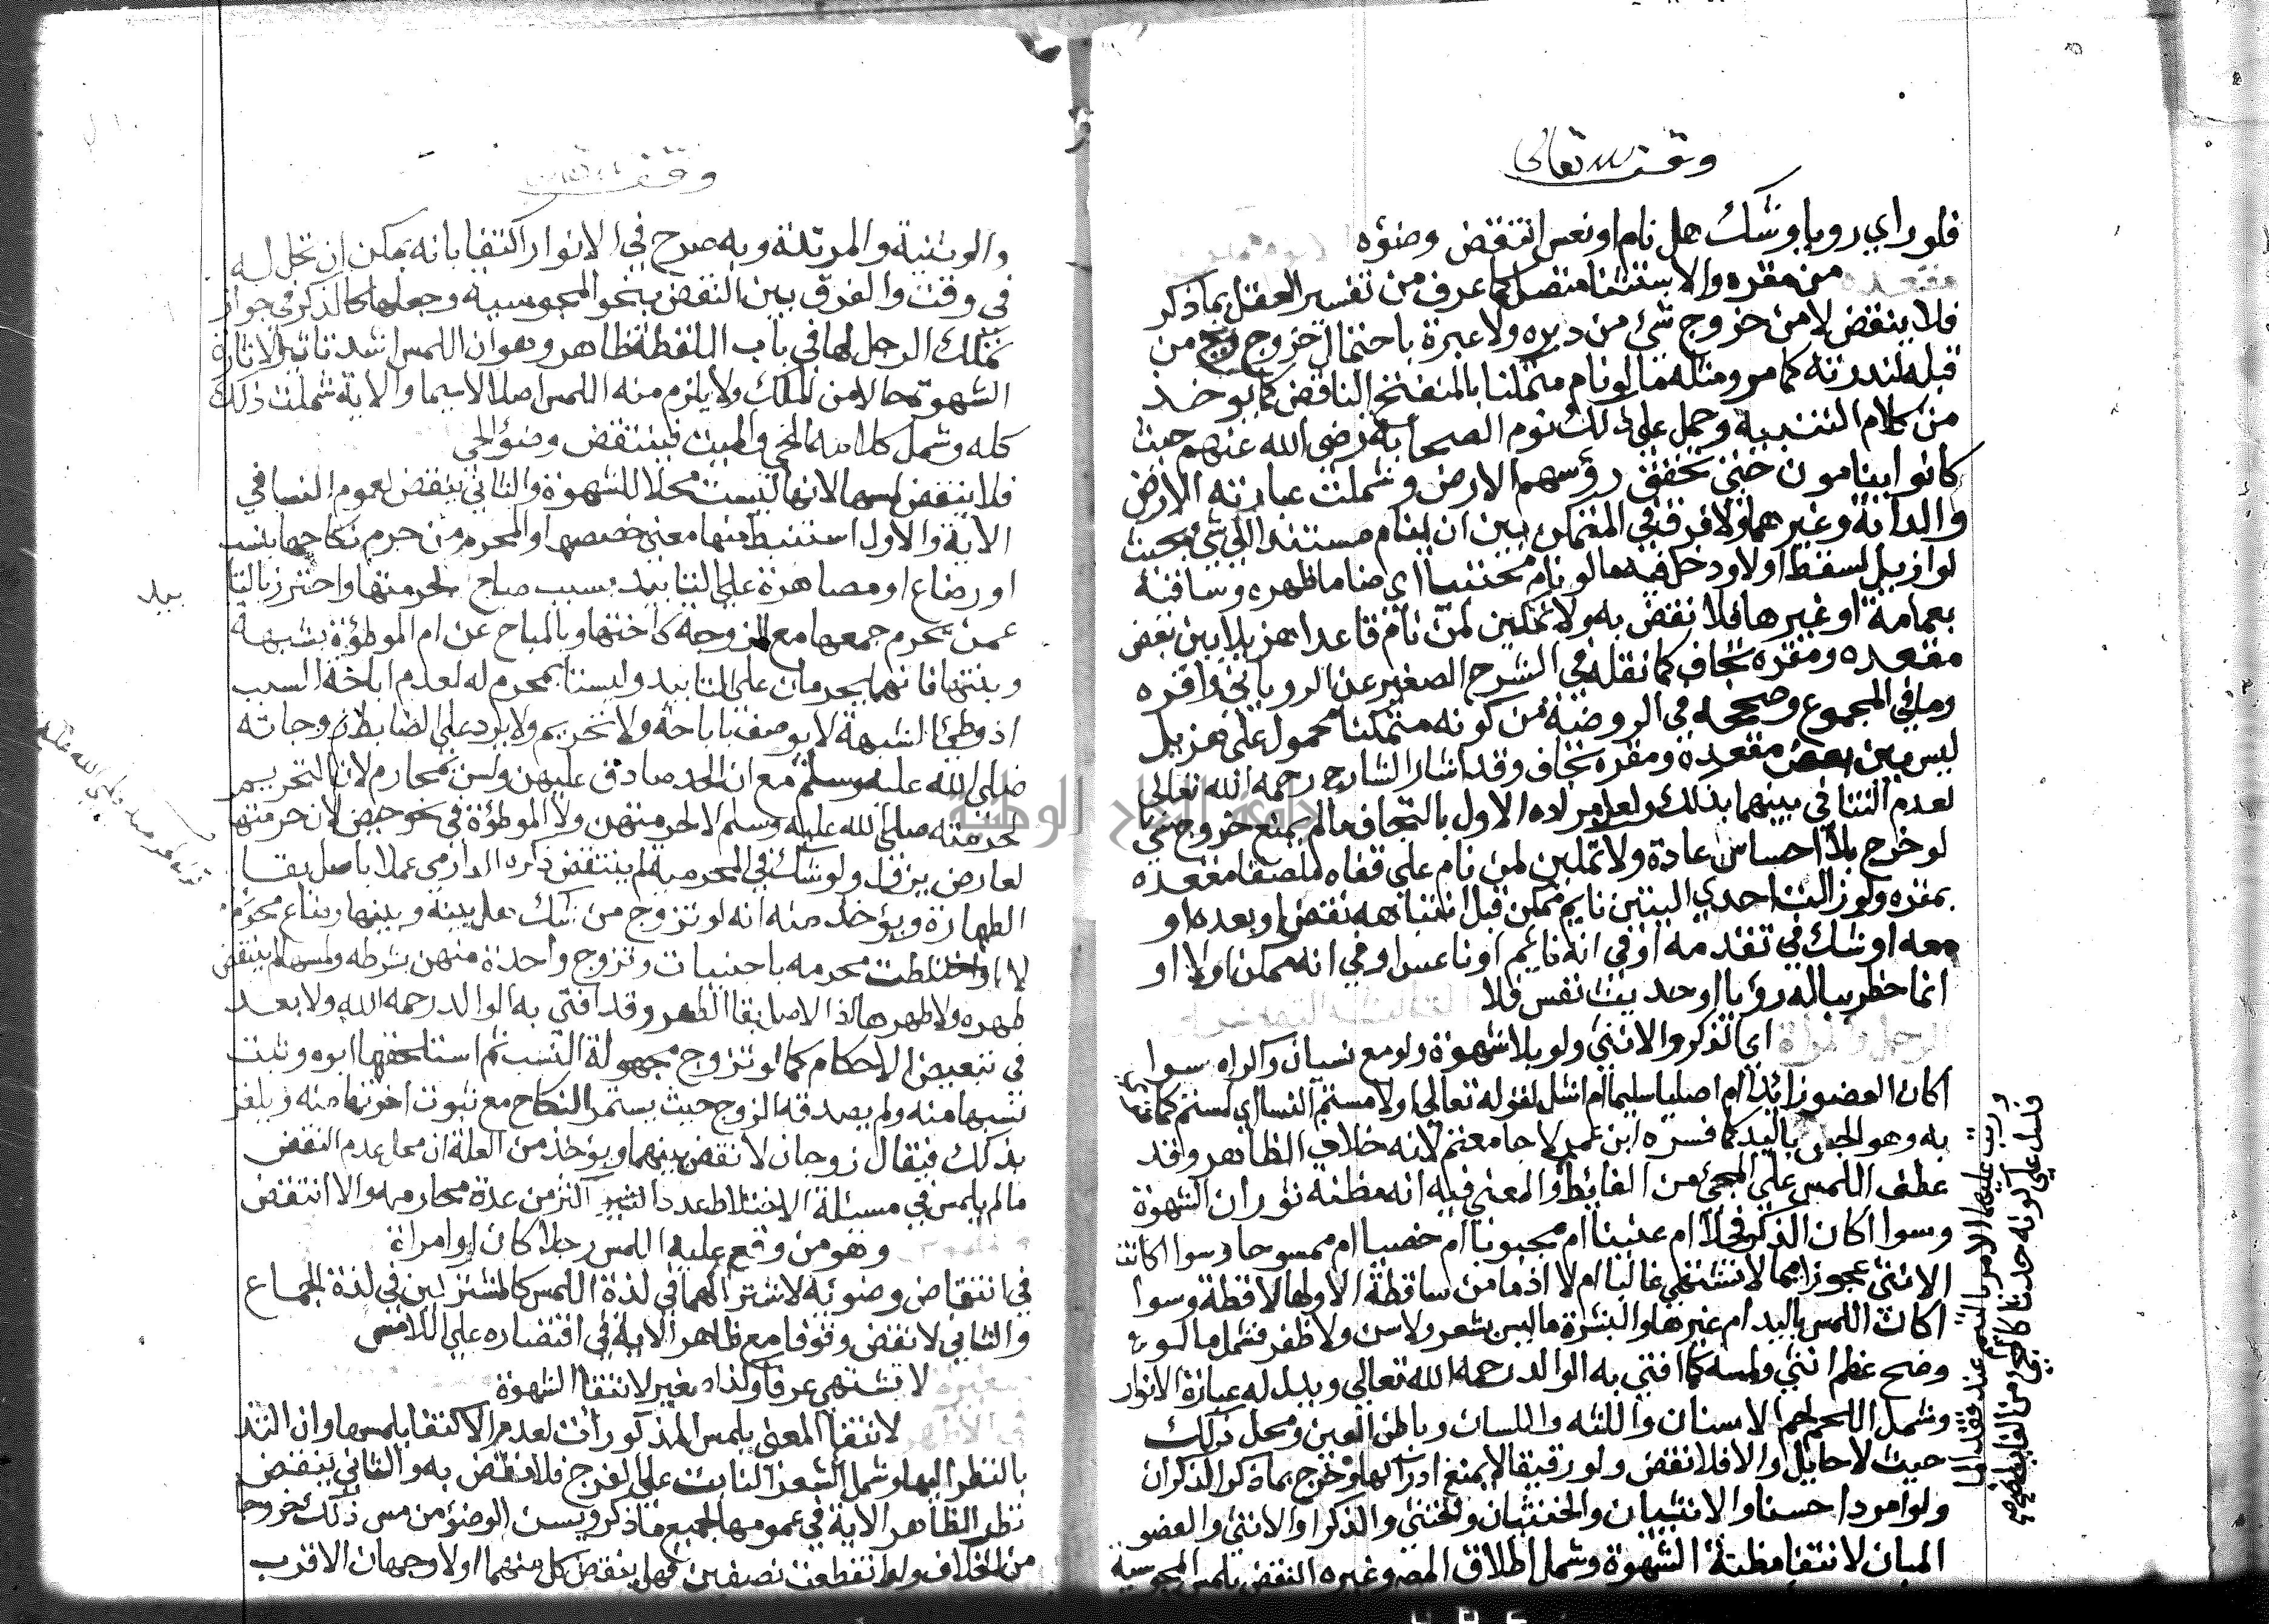 وقف لله تعالى
فلو راي رويا وشك هل نام او نعس انتقض وضوه
من مقره والاستثنا متصل كما عرف من تفسير العقل بما ذكر
فلا ينقض لا من خروج شئ من دبره ولا عبرة باحتمال خروج ريح من
قبله لندرته كما مر ومثله ما لو نام متمكنا بالمنفتح الناقض كما يوخذ
من كلام التنبيه وحمل علي ذلك نوم الصحابة رضي الله عنهم حيث
كانوا ينامون حتي تخفق رؤسهم الارض وشملت عبارته الارض
والدابة وغيرهما ولا فرق في المتمكن بين ان ينام مستندا الي شي بحيث
لو ازيل لسقط اولا ودخل فيه ما لو نام محتبيا اي ضاما ظهره وساقيه
بعمامة او غيرها فلا نقض به ولا تمكين لمن نام قاعدا هزيلا بين بعض
مقعده ومقره تجاف كما نقله في الشرح الصغير عن الروياني واقره
وما في المجموع وصححه في الروضة من كونه متمكنا محمول علي هزيل
ليس بين بعض مقعده ومقره تجاف وقد اشار الشارح رحمه الله تعالي
لعدم التنافي بينهما بذلك ولعل مراده الاول بالتجاف مالم يمنع خروج شي
لو خرج بلا احساس عادة ولا تمكين لمن نام علي قفاه ملصقا مقعده
بمقره ولو زالت احدي اليتي نايم ممكن قبل انتباهه نقض او بعده او
معه او شك في تقدمه او في انه نائم او ناعس او في انه ممكن اولا او
انما خطر بباله رؤيا او حديث نفس فلا
اي الذكر والانثي ولو بلا شهوة ولو مع نسيان واكراه سوا
اكان العضو زائدا ام اصليا سليما ام اشل لقوله تعالي او لامستم النسا اي لمستم كما قرئ
به وهو الجس باليد كما فسره ابن عمر لا جامعتم لانه خلاف الظاهر وقد
عطف اللمس علي المجئ من الغائط والمعني فيه انه مظنة ثوران الشهوة
وسوا اكان الذكر فحلا ام عنينا ام مجبوبا ام خصيا ام ممسوحا وسوا اكانت
الانثي عجوزا هما لا تشتهي غالبا ام لا اذ ما من ساقطة الا ولها لاقطة وسوا
اكان اللمس باليد ام غيرها والبشرة ما ليس بشعر ولا سن ولا ظفر فشمل ما لو
وضح عظم انثي ولمسه كما افتي به الوالد رحمه الله تعالي ويدل له عبارة الانوار
وشمل اللحم لحم الاسنان واللثه واللسان وباطن العين ومحل ذلك
حيث لا حايل والا فلا نقض ولو رقيقا لا يمنع ادراكها وخرج بما ذكر الذكران
ولو امردا حسنا والانثيان والخنثيان والخنثي والذكر او الانثي والعضو
المبان لانتفا مظنة الشهوة وشمل اطلاق المصر وغيره النقض بلمس المجوسية
ورتب عليهما الامر بالتيمم عند فقد الما
فدل علي كونه حدثا كالمجئ من الغايط صح
وقف لله تعالى
والوثنية والمرتدة وبه صرح في الانوار اكتفا بانه يمكن ان تحل له
في وقت والفرق بين النقض بنحو المجوسية وجعلها كالذكر في جواز
تملك الرجل لها في باب اللقطة ظاهر وهو ان اللمس اشد تاثيرا لاثارة
الشهوة حالا من الملك ولا يلزم منه اللمس اصلا لا سيما والاية شملت ذلك
كله وشمل كلامه الحي والميت فينتقض وضؤ الحي
فلا ينقض لمسها لانها ليست محلا للشهوة والثاني ينقض لعموم النسا في
الاية والاول استنبط منها معني خصصها والمحرم من حرم نكاحها بنسب
او رضاع او مصاهرة علي التابيد بسبب مباح لحرمتها واحترز بالتا
بيد
عمن يحرم جمعها مع الزوجة كاختها وبالمباح عن ام الموطؤة بشبهة
وبنتها فانهما يحرمان علي التابيد وليستا بمحرم له لعدم اباحة السبب
اذ وطئ الشبهة لا يوصف باباحة ولا تحريم ولا يرد علي الضابط زوجاته
صلي الله عليه وسلم مع ان الحد صادق عليهن ولسن بمحارم لان التحريم
لحرمته صلي الله عليه وسلم لا لحرمتهن ولا الموطؤة في نحو حيض لان حرمتها
لعارض يزول ولو شك في المحرمية لم ينتقض ذكره الدارمي عملا باصل بقا
الطهارة ويؤخذ منه انه لو تزوج من شك هل بينه وبينها رضاع محرم
لا او اختلطت محرمه باجنبيات وتزوج واحدة منهن بشرطه ولمسها لم ينتقض
طهره ولا طهرها اذ الاصل بقا الطهر وقد افتي به الوالد رحمه الله ولا بعد
في تبعيض الاحكام كما لو تزوج مجهولة النسب ثم استلحقها ابوه وثبت
نسبها منه ولم يصدقه الزوج حيث يستمر النكاح مع ثبوت اخوتها منه ويلغز
بذلك فيقال زوجان لا نقض بينهما ويؤخذ من العلة ان محل عدم النقض
مالم يلمس في مسئلة الاختلاط عددا اكثر من عدة محارمه والا انتقض
وهو من وقع عليه اللمس رجلا كان او امراة
في انتقاض وضوئه لاشتراكهما في لذة اللمس كالمشتركين في لذة الجماع
والثاني لا نقض وقوفا مع ظاهر الاية في اقتصاره علي اللامس
لا تشتهي عرفا وكذا صغير لانتفا الشهوة
لانتفا المعني بلمس المذكورات لعدم الاكتفا بلمسها وان التذ
بالنظر اليها وشمل الشعر النابت علي الفرج فلا نقض به والثاني ينقض
نظرا لظاهر الاية في عمومها لجميع ما ذكر ويسن الوضؤ من مس ذلك خروجا
من الخلاف ولو انقطعت نصفين فهل ينقض كل منهما اولا وجهان الاقرب